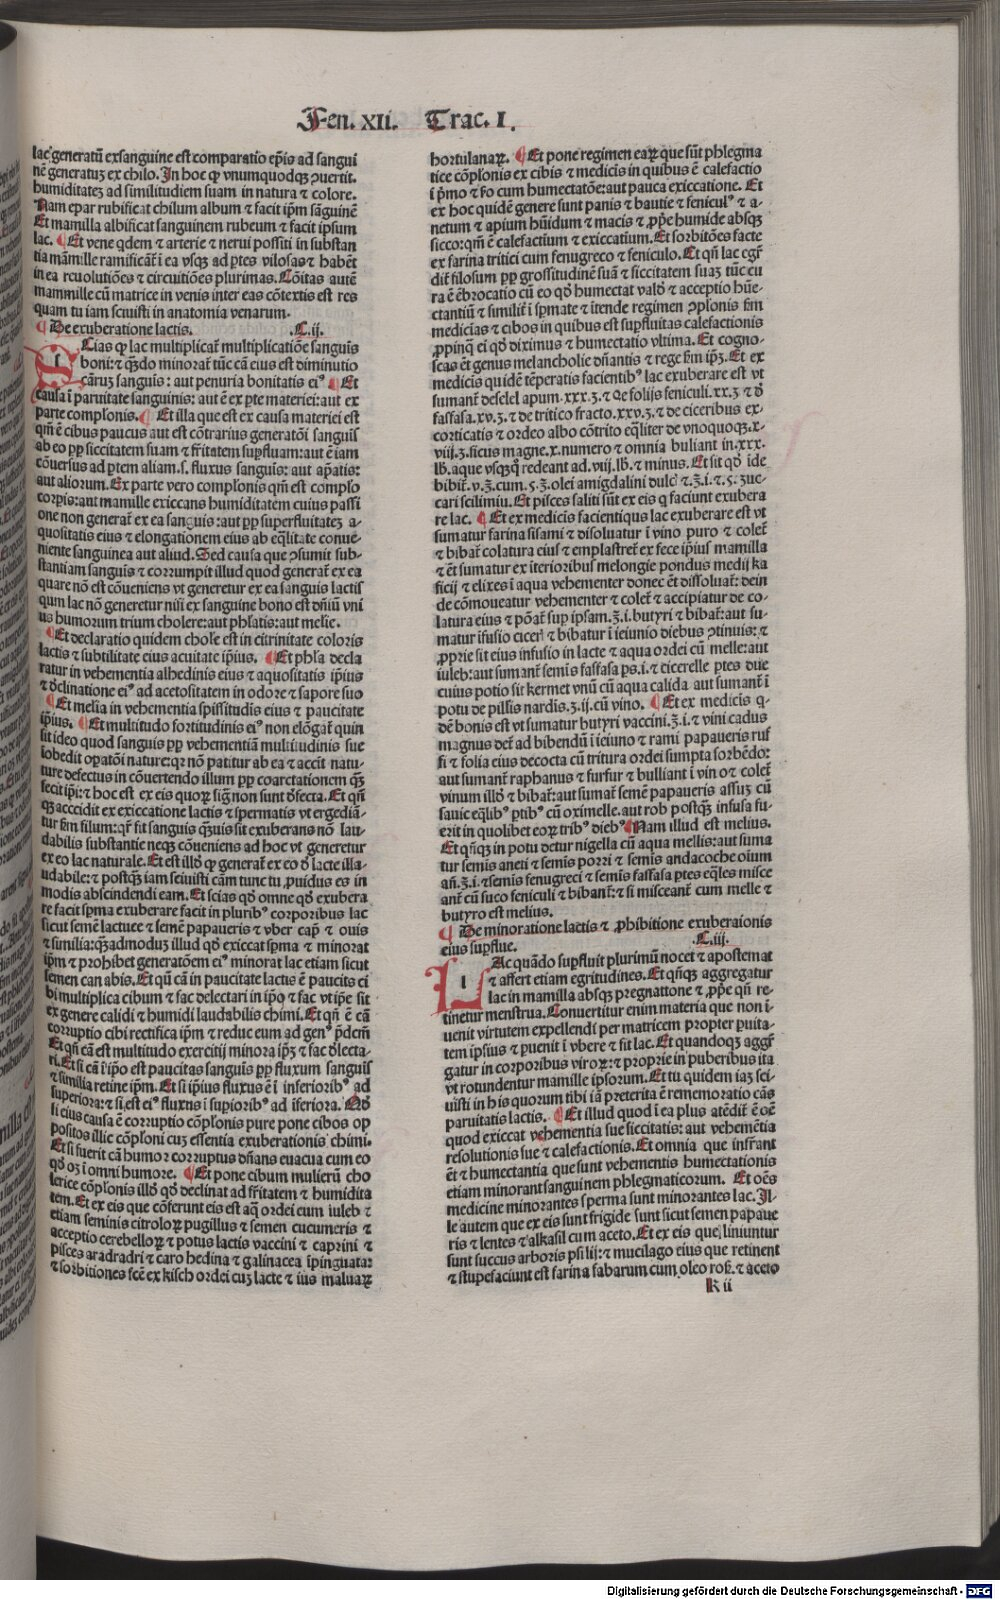 Fen. XII. Trac. I.
lac generatū ex sanguine est comparatio ep̄is ad sangui
nē generatuʒ ex chilo. In hoc ꝙ vnumquodqʒ ꝯuertit.
humiditateʒ ad similitudiem suam in natura ⁊ colore.
Nam epar rubificat chilum album ⁊ facit ip̄m sāguinē
Et mamilla albificat sanguinem rubeum ⁊ facit ipsum
lac. ¶ Et vene qdem ⁊ arterie ⁊ nerui possiti in substan
tia māmille ramificant̄ ī ea vsqʒ ad ptes vilosas ⁊ habēt
in ea reuolutiōes ⁊ circuitiōes plurimas. Cōitas autē
mammille cū matrice in venis inter eas cōtextis est res
quam tu iam sciuisti in anatomia venarum.
¶ De exuberatione lactis. .C.ii.
SCias ꝙ lac multiplicat̄ multiplicatiōe sanguis
boni: ⁊ qn̄do minorat̄ tūc cā eius est diminutio
cāruʒ sanguis: aut penuria bonitatis eiꝰ ¶ Et
causa ī paruitate sanguinis: aut ē ex pte materiei: aut ex
parte complonis. ¶ Et illa que est ex causa materiei est
qm̄ ē cibus paucus aut est cōtrarius generatōi sanguis
ab eo pp̄ siccitatem suam ⁊ frītatem supfluam: aut ē iam
cōuersus ad ptem aliam .s. fluxus sanguis: aut ap̄atis:
aut aliorum. Ex parte vero complonis qm̄ est complo
corpis: aut mamille exiccans humiditatem cuius passi
one non generat̄ ex ea sanguis: aut pp̄ superfluitateʒ a-
quositatis eius ⁊ elongationem eius ab eq̄litate conue-
niente sanguinea aut aliud. Sed causa que ꝯsumit sub-
stantiam sanguis ⁊ corrumpit illud quod generat̄ ex ea
quare nō est cōueniens vt generetur ex ea sanguis lactis
qum lac nō generetur nisi ex sanguine bono est dn̄iū vni
us humorum trium cholere: aut phlatis: aut melie.
¶ Et declaratio quidem chole est in citrinitate coloris
lactis ⁊ subtilitate eius acuitate ip̄ius. ¶ Et phla decla
ratur in vehementia albedinis eius ⁊ aquositatis ip̄ius
⁊ d̄clinatione eiꝰ ad acetositatem in odore ⁊ sapore suo
¶ Et melia in vehementia spissitudis eius ⁊ paucitate
ip̄ius. ¶ Et multitudo fortitudinis eiꝰ non elōgat̄ quin
sit ideo quod sanguis pp̄ vehementiā multitudinis sue
īobedit opatōi nature: qꝛ nō patitur ab ea ⁊ accit natu-
ture defectus in cōuertendo illum pp̄ coarctationem qʒ
fecit ip̄i: ⁊ hoc est ex eis quoꝝ sig̃ non sunt d̄fecta. Et qn̄
qʒ acccidit ex exiccatione lactis ⁊ spermatis vt ergediā-
tur fm̄ filum: qr̄ fit sanguis q̄uis sit exuberans nō lau-
dabilis substantie neqʒ cōueniens ad hoc vt generetur
ex eo lac naturale. Et est illd̄ ꝙ generat̄ ex eo d̄ lacte illa-
udabile: ⁊ postqʒ iam sciuisti cām tunc tu ꝓuidus es in
modis abscindendi eam. Et scias qd̄ omne qd̄ exubera
re facit spma exuberare facit in pluribꝰ corporibus lac
sicut semē lactuce ⁊ semē papaueris ⁊ vber cap̄ ⁊ ouis
⁊ similia: q̄admoduʒ illud qd̄ exiccat spma ⁊ minorat
ip̄m ⁊ prohibet generatōem eiꝰ minorat lac etiam sicut
semen canabis. Et qū cā in paucitate lactis ē paucits ci
bi multiplica cibum ⁊ fac delectari in ip̄o ⁊ fac vt ip̄e sit
ex genere calidi ⁊ humidi laudabilis chimi. Et qn̄ ē cā
corruptio cibi rectifica ip̄m ⁊ reduc eum ad genꝰ p̄dcm̄
Et qn̄ cā est multitudo exercitij minora ip̄ʒ ⁊ fac d̄lecta-
ri. Et si cā ī ip̄o est paucitas sanguis pp̄ fluxum sanguis
⁊ similia retine ip̄m. Et si ip̄ius fluxus ē ī inferioribꝰ ad
superiora: ⁊ si est eiꝰ fluxus ī supioribꝰ ad īferiora. Qd̄
si eius causa ē corruptio cōplonis pure pone cibos op
positos illic cōploni cuʒ essentia exuberationis chimi.
Et si fuerit cā humor corruptus dn̄ans euacua cum eo
qd̄ oʒ ī omni humore. ¶ Et pone cibum mulierū cho
lerice cōplonis illd̄ qd̄ declinat ad frītatem ⁊ humidita
tem. Et ex eis que cōferunt eis est aq̄ ordei cum iuleb ⁊
etiam seminis citroloꝝ pugillus ⁊ semen cucumeris ⁊
acceptio cerebelloꝝ ⁊ potus lactis vaccini ⁊ caprini ⁊
pisces aradradri ⁊ caro hedina ⁊ galinacea īpinguata:
⁊ sorbitiones fcē ex kisch ordei cuʒ lacte ⁊ ius maluaꝝ
hortulanaꝝ. ¶ Et pone regimen eaꝝ que sūt phlegma
tice cōplonis ex cibis ⁊ medicis in quibus ē calefactio
ī p̄mo ⁊ fo cum humectatōe: aut pauca exiccatione. Et
ex hoc quidē genere sunt panis ⁊ bautie ⁊ feniculꝰ ⁊ a-
netum ⁊ apium hūidum ⁊ macis ⁊ ꝓp̄e humide absqʒ
sicco: qm̄ ē calefactium ⁊ exiccatium. Et sorbitōes facte
ex farina tritici cum fenugreco ⁊ feniculo. Et qn̄ lac cgr̄
dit̄ filosum pp̄ grossitudinē suā ⁊ siccitatem suaʒ tūc cu
ra ē ēbrocatio cū eo qd̄ humectat vald̄ ⁊ acceptio hūe-
ctantiū ⁊ similit̄ ī spmate ⁊ ītende regimen ꝯplonis fm̄
medicias ⁊ cibos in quibus est supfluitas calefactionis
ꝓpinq̄ ei qd̄ diximus ⁊ humectatio vltima. Et cogno-
scas ēt genus melancholie dn̄antis ⁊ rege fm̄ ip̄ʒ. Et ex
medicis quidē tēperatis facientibꝰ lac exuberare est vt
sumant̄ de selel apum .xxx.ʒ. ⁊ de folijs feniculi .xx.ʒ ⁊ d̄
fassasa .xv.ʒ. ⁊ de tritico fracto .xxv.ʒ. ⁊ de ciceribus ex-
corticatis ⁊ ordeo albo cōtrito eq̄liter de vnoquoqʒ .x-
viij.ʒ. ficus magne .x. numero ⁊ omnia buliant in .xxx.
lb̄. aque vsqʒqʒ redeant ad .viij. lb̄. ⁊ minus. Et sit qd̄ īde
bibit̄ .v.ʒ. cum .s.ʒ. olei amigdalini dulc̄ ⁊ .ʒ.i. ⁊ .s. ʒuc-
cari scilimiu. Et pisces saliti sūt ex eis q̄ faciunt exubera
re lac. ¶ Et ex medicis facientiqus lac exuberare est vt
sumatur farina sisami ⁊ disoluatur ī vino puro ⁊ colet̄
⁊ bibat̄ colatura eius ⁊ emplastret̄ ex fece ip̄ius mamilla
⁊ ēt sumatur ex īterioribus melongie pondus medij ka
ficij ⁊ elixes ī aqua vehementer donec ēt dissoluat̄: dein
de cōmoueatur vehementer ⁊ colet̄ ⁊ accipiatur de co-
latura eius ⁊ pōat̄ sup ipsam .ʒ.i. butyri ⁊ bibat̄: aut su-
matur īfusio cicer̄ ⁊ bibatur ī ieiunio diebus ꝯtinuis: ⁊
ꝓprie sit eius infusio in lacte ⁊ aqua ordei cū melle: aut
iuleb: aut sumant̄ semis fassasa ps .i. ⁊ cicerelle ptes due
cuius potio sit kermet vnū cū aqua calida aut sumant̄ ī
potu de pilsis nardis .ʒ.ij. cū vino. ¶ Et ex medicis q-
dē bonis est vt sumatur butyri vaccini .ʒ.i. ⁊ vini cadus
magnus det̄ ad bibendū ī ieiuno ⁊ rami papaueris ruf
fi ⁊ folia eius decocta cū tritura ordei sumpta sorbēdo:
aut sumant̄ raphanus ⁊ furfur ⁊ bulliant ī vin o ⁊ colet̄
vinum illd̄ ⁊ bibat̄: aut sumat̄ semē papaueris assuʒ cū
sauic eq̄libꝰ ptibꝰ cū oximelle. aut rob postqʒ infusa fu-
erit in quolibet eoꝝ tribꝰ diebꝰ ¶ Nam illud est melius.
Et qn̄qʒ in potu detur nigella cū aqua mellis: aut suma
tur semis aneti ⁊ semis porri ⁊ semis andacoche oium
an̄.ʒ.i. ⁊ semis fenugreci ⁊ semis fassasa ptes eq̄les misce
ant̄ cū suco feniculi ⁊ bibant̄: ⁊ si misceant̄ cum melle ⁊
butyro est melius.
¶ De minoratione lactis ⁊ ꝓhibitione exuberaionis
eius supflue. .C.iii.
LAc quādo supfluit plurimū nocet ⁊ apostemat
⁊ affert etiam egritudines. Et qn̄qʒ aggregatur
lac in mamilla absqʒ pregnattone ⁊ ꝓp̄e qn̄ re-
tinetur menstrua. Conuertitur enim materia que non ī-
uenit virtutem expellendi per matricem propter puita-
tem ipsius ⁊ puenit ī vbere ⁊ fit lac. Et quandoqʒ aggr̄
gatur in corporibus viroꝝ: ⁊ proprie in puberibus ita
vt rotundentur mamille ipsorum. Et tu quidem iaʒ sci-
uisti in his quorum tibi iā preterita ē rememoratio cās
paruitatis lactis. ¶ Et illud quod ī ea plus atēdit̄ ē oē
quod exiccat vehementia sue siccitatis: aut vehemētia
resolutionis sue ⁊ calefactionis. Et omnia que infr̄ant
ēt ⁊ humectantia que sunt vehementis humectationis
etiam minorant sanguinem phlegmaticorum. Et oēs
medicine minorantes sperma sunt minorantes lac. Il-
le autem que ex eis sunt frigide sunt sicut semen papaue
ris ⁊ lentes ⁊ alkasil cum aceto. Et ex eis que liniuntur
sunt succus arboris psilij: ⁊ mucilago eius que retinent
⁊ stupefaciunt est farina fabarum cum oleo ros̄. ⁊ aceto
K ii
Digitalisierung gefördert durch die Deutsche Forschungsgemeinschaft - DFG